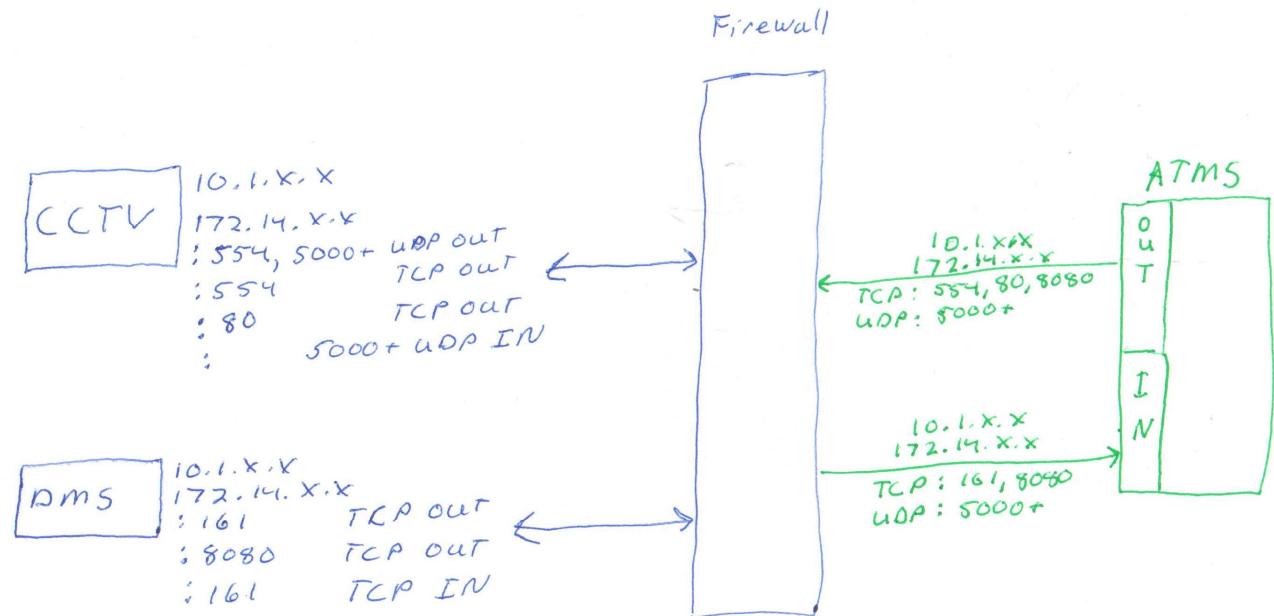 Firewall
CCTV
10.1.X.X
172.14.X.X
: 554, 5000+ UDP OUT
TCP OUT
: 554
: 80 TCP OUT
: 5000+ UDP IN
DMS
10.1.X.X
172.14.X.X
: 161 TCP OUT
: 8080 TCP OUT
: 161 TCP IN
ATMS
OUT
IN
10.1.X.X
172.14.X.X
TCP: 554, 80, 8080
UDP: 5000+
10.1.X.X
172.14.X.X
TCP: 161, 8080
UDP: 5000+